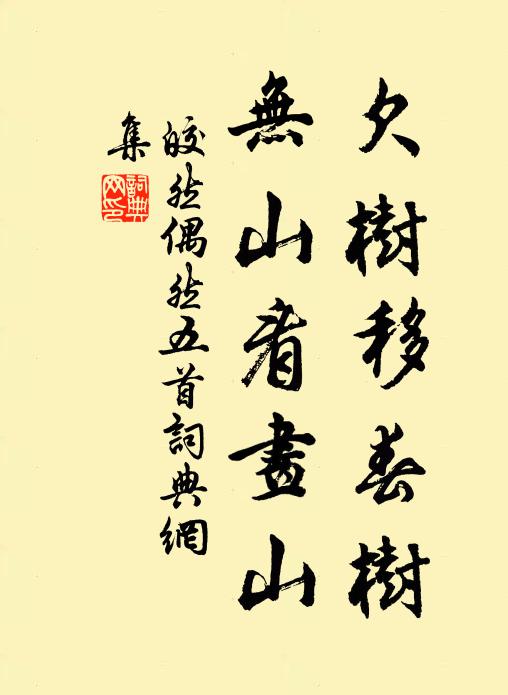 欠樹移春樹
無山看畫山
皎然偶然五首詞典網
集
詞典
网印